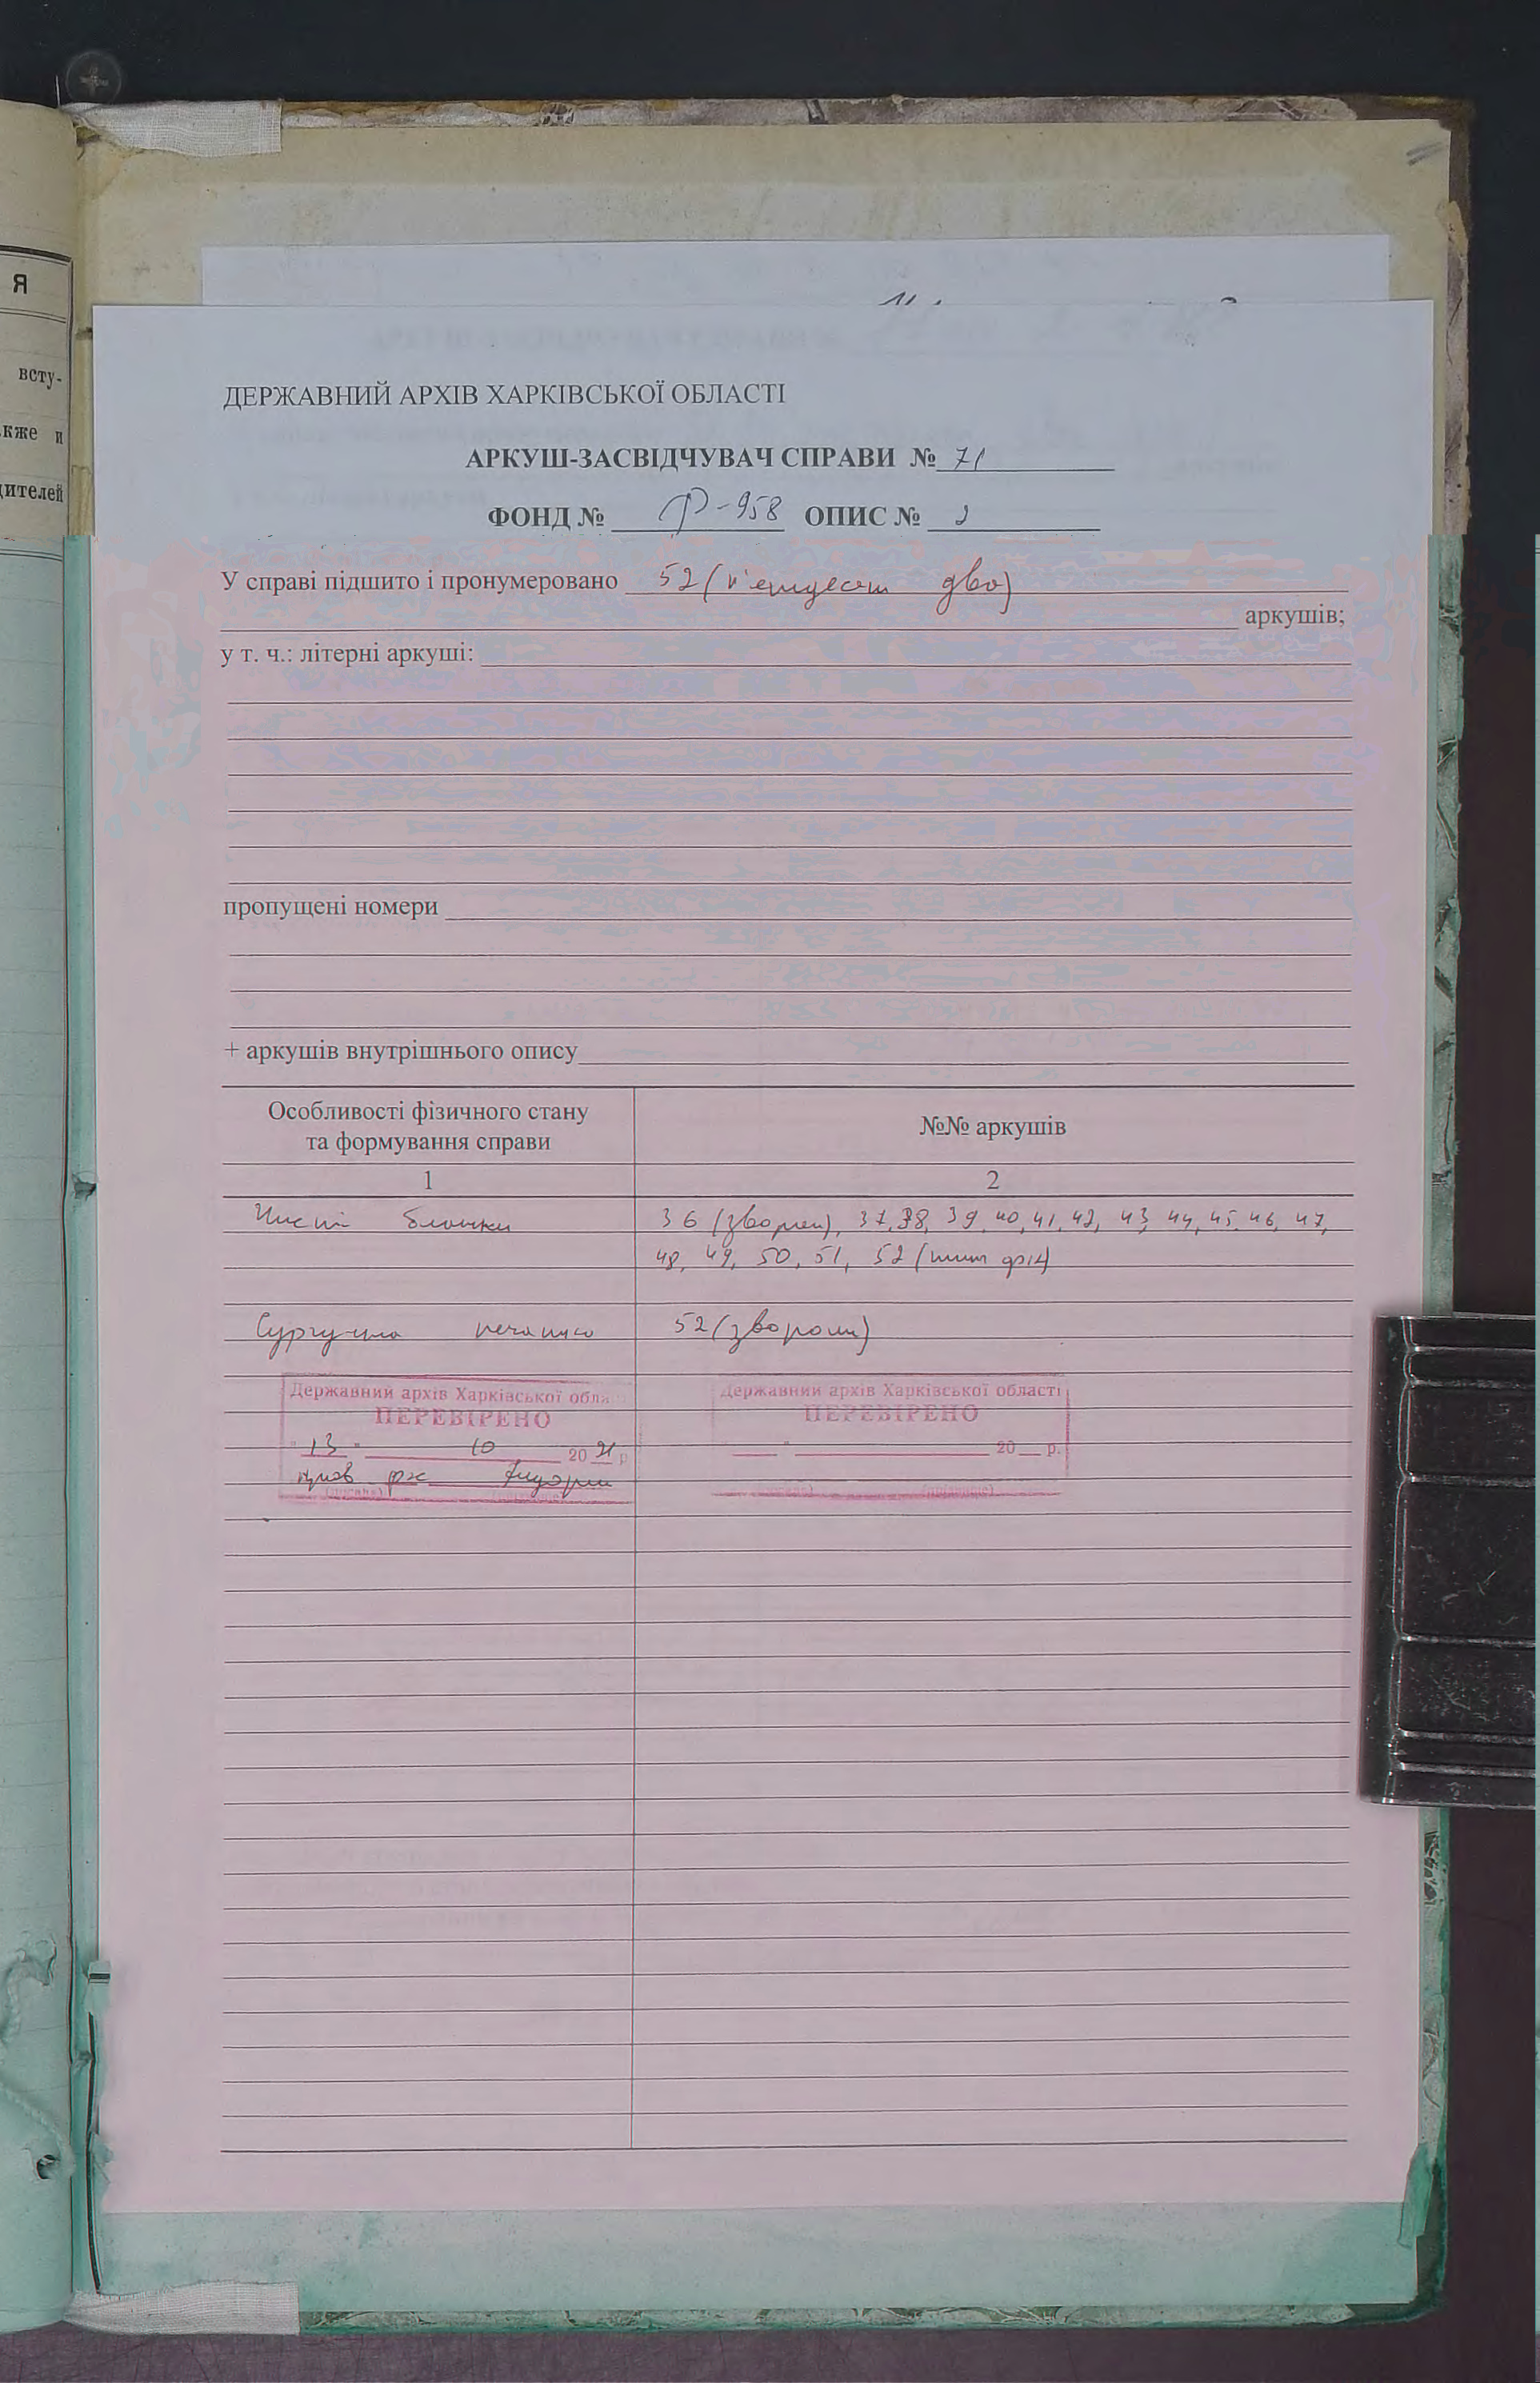 Я
всту-
кже и
дителей
ДЕРЖАВНИЙ АРХІВ ХАРКІВСЬКОЇ ОБЛАСТІ
АРКУШ-ЗАСВІДЧУВАЧ СПРАВИ № 71
ФОНД № Р-958 ОПИС № 2
У справі підшито і пронумеровано 52 (п'ятдесят два)
аркушів;
у т. ч.: літерні аркуші:
пропущені номери
+ аркушів внутрішнього опису
Особливості фізичного стану
та формування справи
№№ аркушів
1 2
Чисті бланки 36 (зворот), 37, 38, 39, 40, 41, 42, 43, 44, 45, 46, 47,
48, 49, 50, 51, 52
Сургучна печатка 52 (зворот)
Державний архів Харківської обла
ПЕРЕВІРЕНО
"13" 10 2021 р
(посада)
Державний архів Харківської області
ПЕРЕВІРЕНО
" 20 р.
(прізвище)